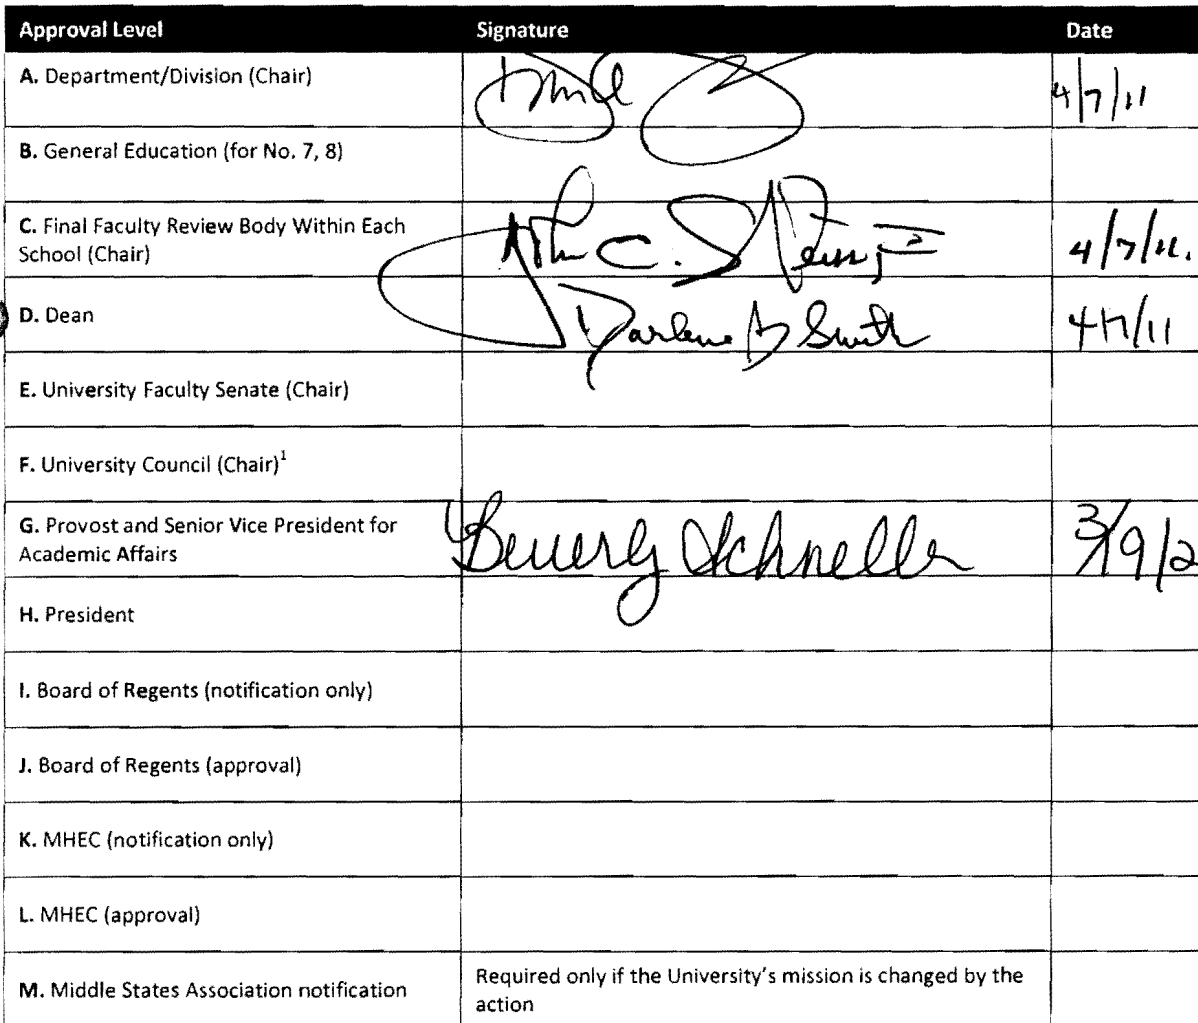 Approval Level Signature Date
A. Department/Division (Chair) 4/7/11
B. General Education (for No. 7, 8)
C. Final Faculty Review Body Within Each
School (Chair) John C. 4/7/11.
D. Dean Darlene B Smith 4/7/11
E. University Faculty Senate (Chair)
F. University Council (Chair)¹
G. Provost and Senior Vice President for
Academic Affairs Beverly Schneller 3/19/2
H. President
I. Board of Regents (notification only)
J. Board of Regents (approval)
K. MHEC (notification only)
L. MHEC (approval)
M. Middle States Association notification Required only if the University's mission is changed by the
action